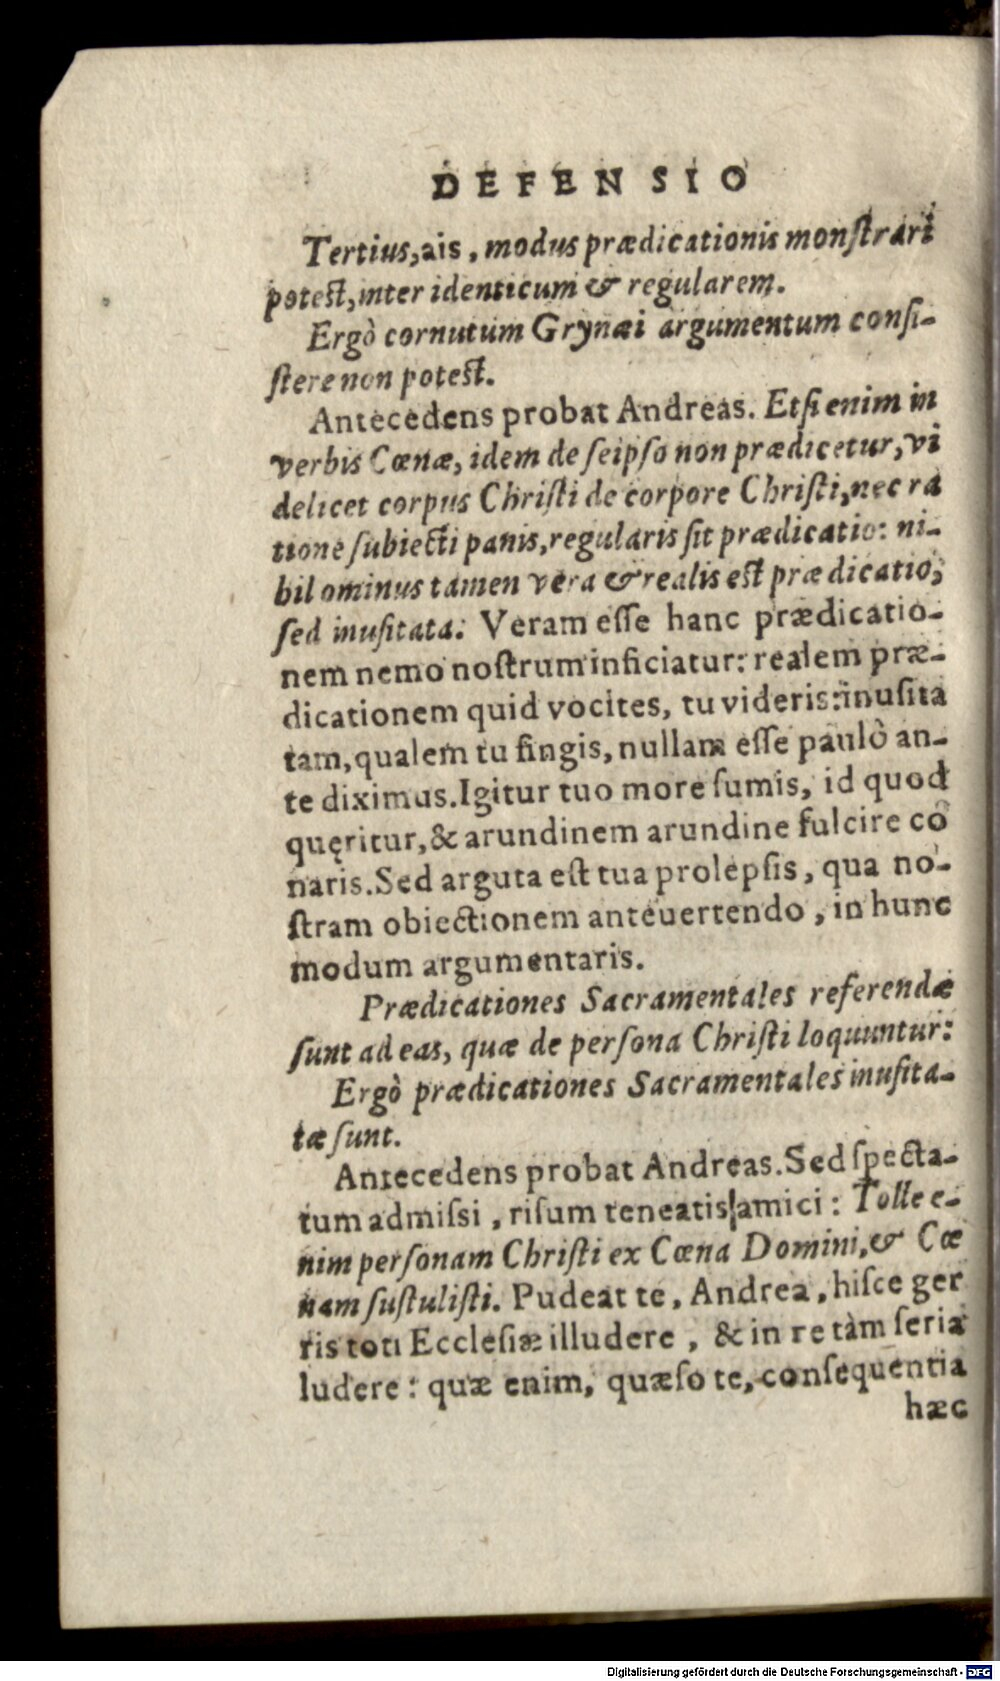 DEFENSIO
Tertius, ais, modus prædicationis monſtrari
poteſt, inter identicum & regularem.
Ergò cornutum Grynæi argumentum conſi-
ſtere non poteſt.
Antecedens probat Andreas. Etſi enim in
verbis Cœnæ, idem de ſeipſo non prædicetur, vi
delicet corpus Chriſti de corpore Chriſti, nec ra
tione ſubiecti panis, regularis ſit prædicatio: ni-
hil ominus tamen vera & realis eſt prædicatio,
ſed inuſitata: Veram eſſe hanc prædicatio-
nem nemo noſtrum inficiatur: realem præ-
dicationem quid vocites, tu videris: inuſita
tam, qualem tu fingis, nullam eſſe paulò an-
te diximus. Igitur tuo more ſumis, id quod
quęritur, & arundinem arundine fulcire cō
naris. Sed arguta eſt tua prolepſis, qua no-
ſtram obiectionem anteuertendo, in hunc
modum argumentaris.
Prædicationes Sacramentales referendæ
ſunt ad eas, quæ de perſona Chriſti loquuntur:
Ergò prædicationes Sacramentales inuſita-
tæ ſunt.
Antecedens probat Andreas. Sed ſpecta-
tum admiſsi, riſum teneatis amici: Tolle e-
nim perſonam Chriſti ex Cœna Domini, & Cœ
nam ſuſtuliſti. Pudeat te, Andrea, hiſce ger
ris toti Eccleſiæ illudere, & in re tàm ſeria
ludere: quæ enim, quæſo te, conſequentia
hæc
Digitalisierung gefördert durch die Deutsche Forschungsgemeinschaft - DFG